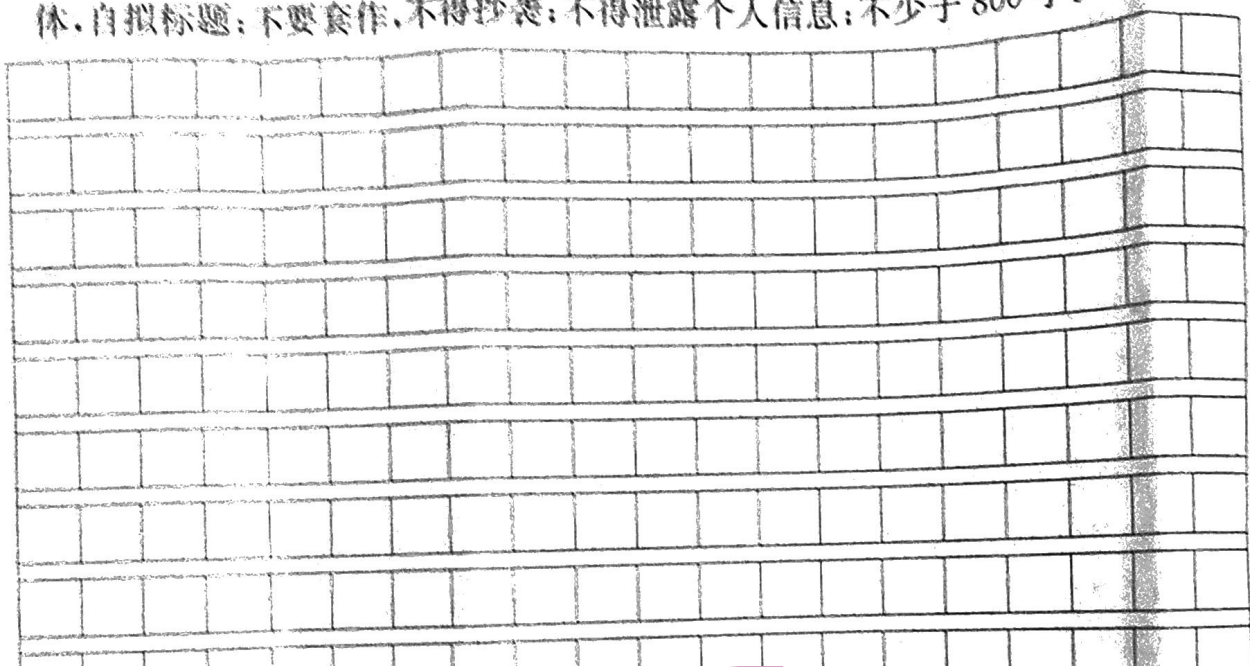 体,自拟标题;不要套作,不得抄袭;不得泄露个人信息;不少于800字。